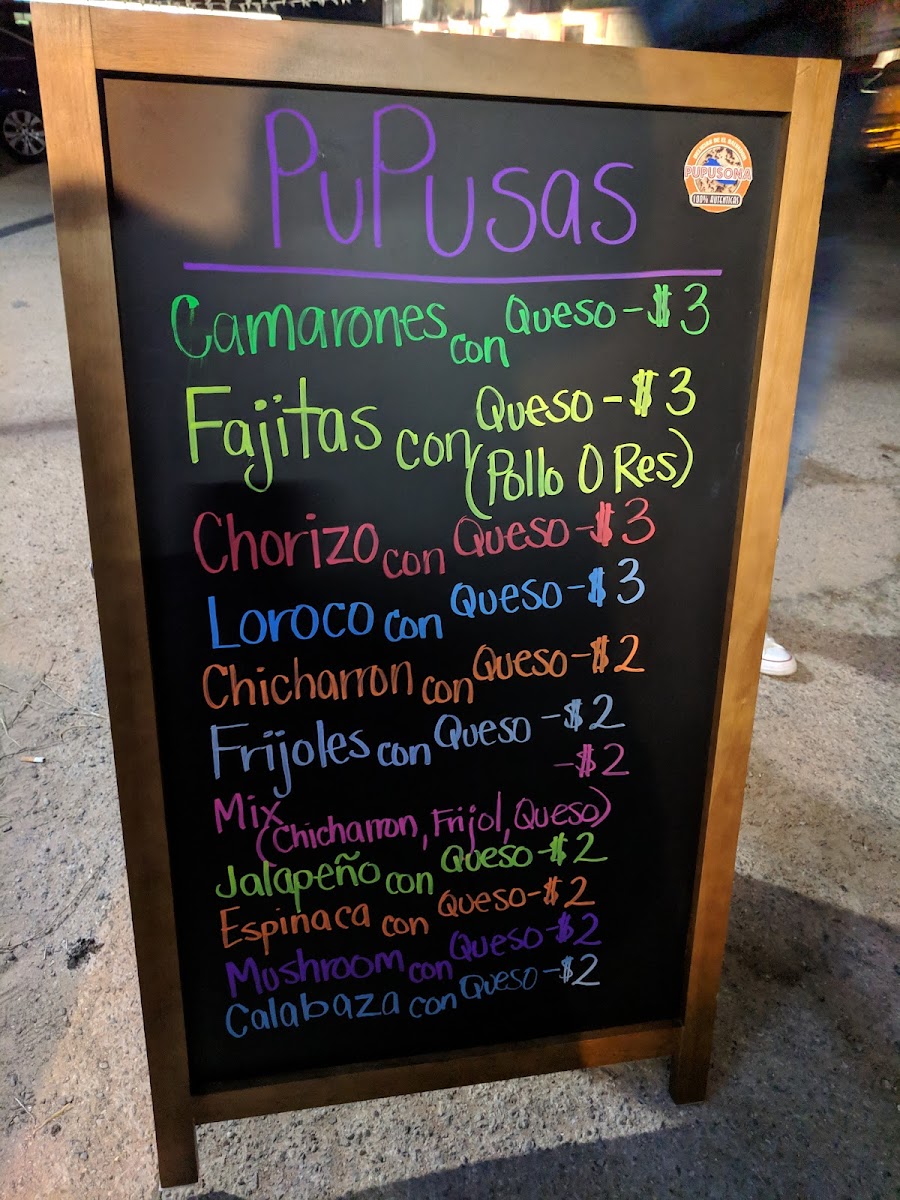 PuPusas
PUPUSONA
100% AUTENTICAS
Camarones con Queso - $3
Fajitas con Queso - $3
(Pollo O Res)
Chorizo con Queso - $3
Loroco con Queso - $3
Chicharron con Queso - $2
Frijoles con Queso - $2
- $2
Mix
(Chicharron, Frijol, Queso)
Jalapeño con Queso - $2
Espinaca con Queso - $2
Mushroom con Queso - $2
Calabaza con Queso - $2